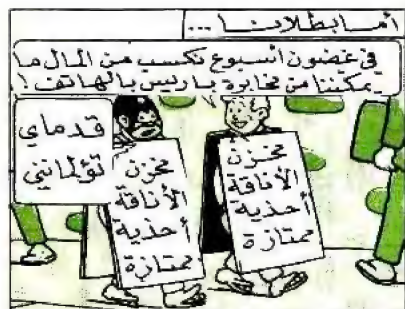 أما بطلانا ...
في غضون أسبوع نكسب من المال ما
يمكننا من مخابرة باريس بالهاتف !
قدماي
تؤلمانني
مخزن
الأناقة
أحذية
ممتازة
مخزن
الأناقة
أحذية
ممتازة